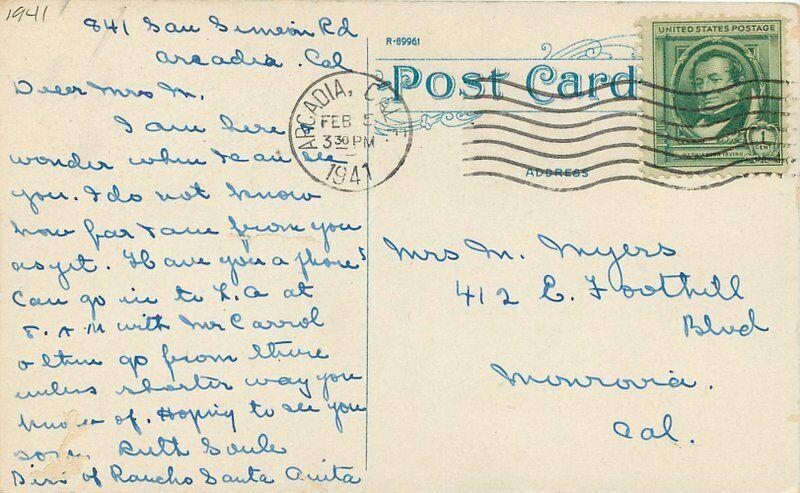 1941
841 San Simeon Rd
Arcadia. Cal
Dear Mrs M.
I am here &
wonder when I can see
you. I do not know
how far I am from you
as yet. Have you a phone
Can go in to L.A at
8. A M with Mr Carrol
& then go from there
unless shorter way you
know of. Hoping to see you
soon. Ruth Soule
Bird of Rancho Santa Anita
R-89961
Post Card
ARCADIA, CAL.
FEB 5
3 30 PM
1941
UNITED STATES POSTAGE
WASHINGTON IRVING
1 CENT
ADDRESS
Mrs M. Myers
412 E. Foothill
Blvd
Monrovia.
Cal.